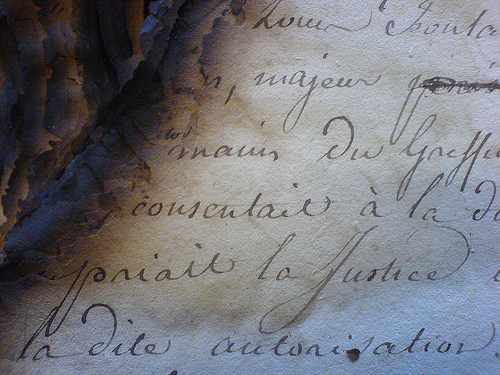 Louis Fonta
n, majeur
mains du Greffie
consentait à la d
priait la Justice
la dite autorisation.